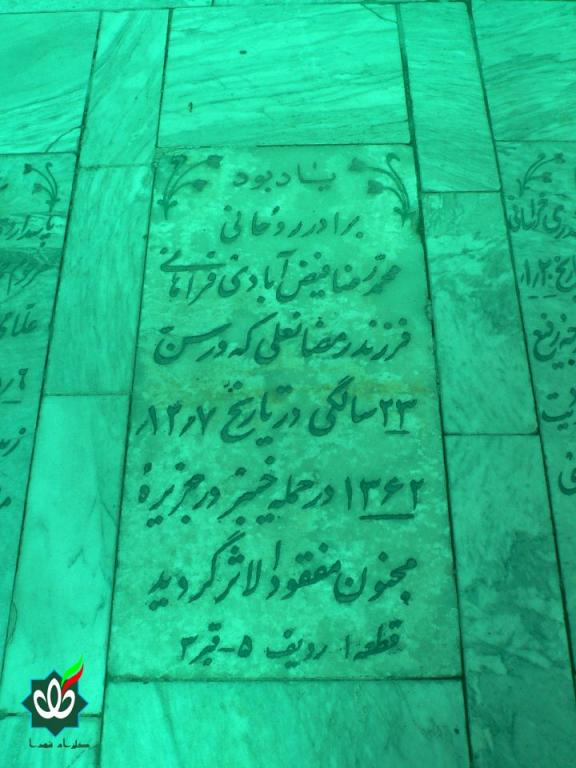 یادبود
برادر روحانی
محمدرضا فیض آبادی فراهانی
فرزند رمضانعلی که در سن
۲۳ سالگی در تاریخ ۱۲٫۷٫
۱۳۶۲ در حمله خیبر در جزیرهٔ
مجنون مفقودالاثر گردید
قطعه ۱ ردیف ۵ - قبر ۳
پاسداری